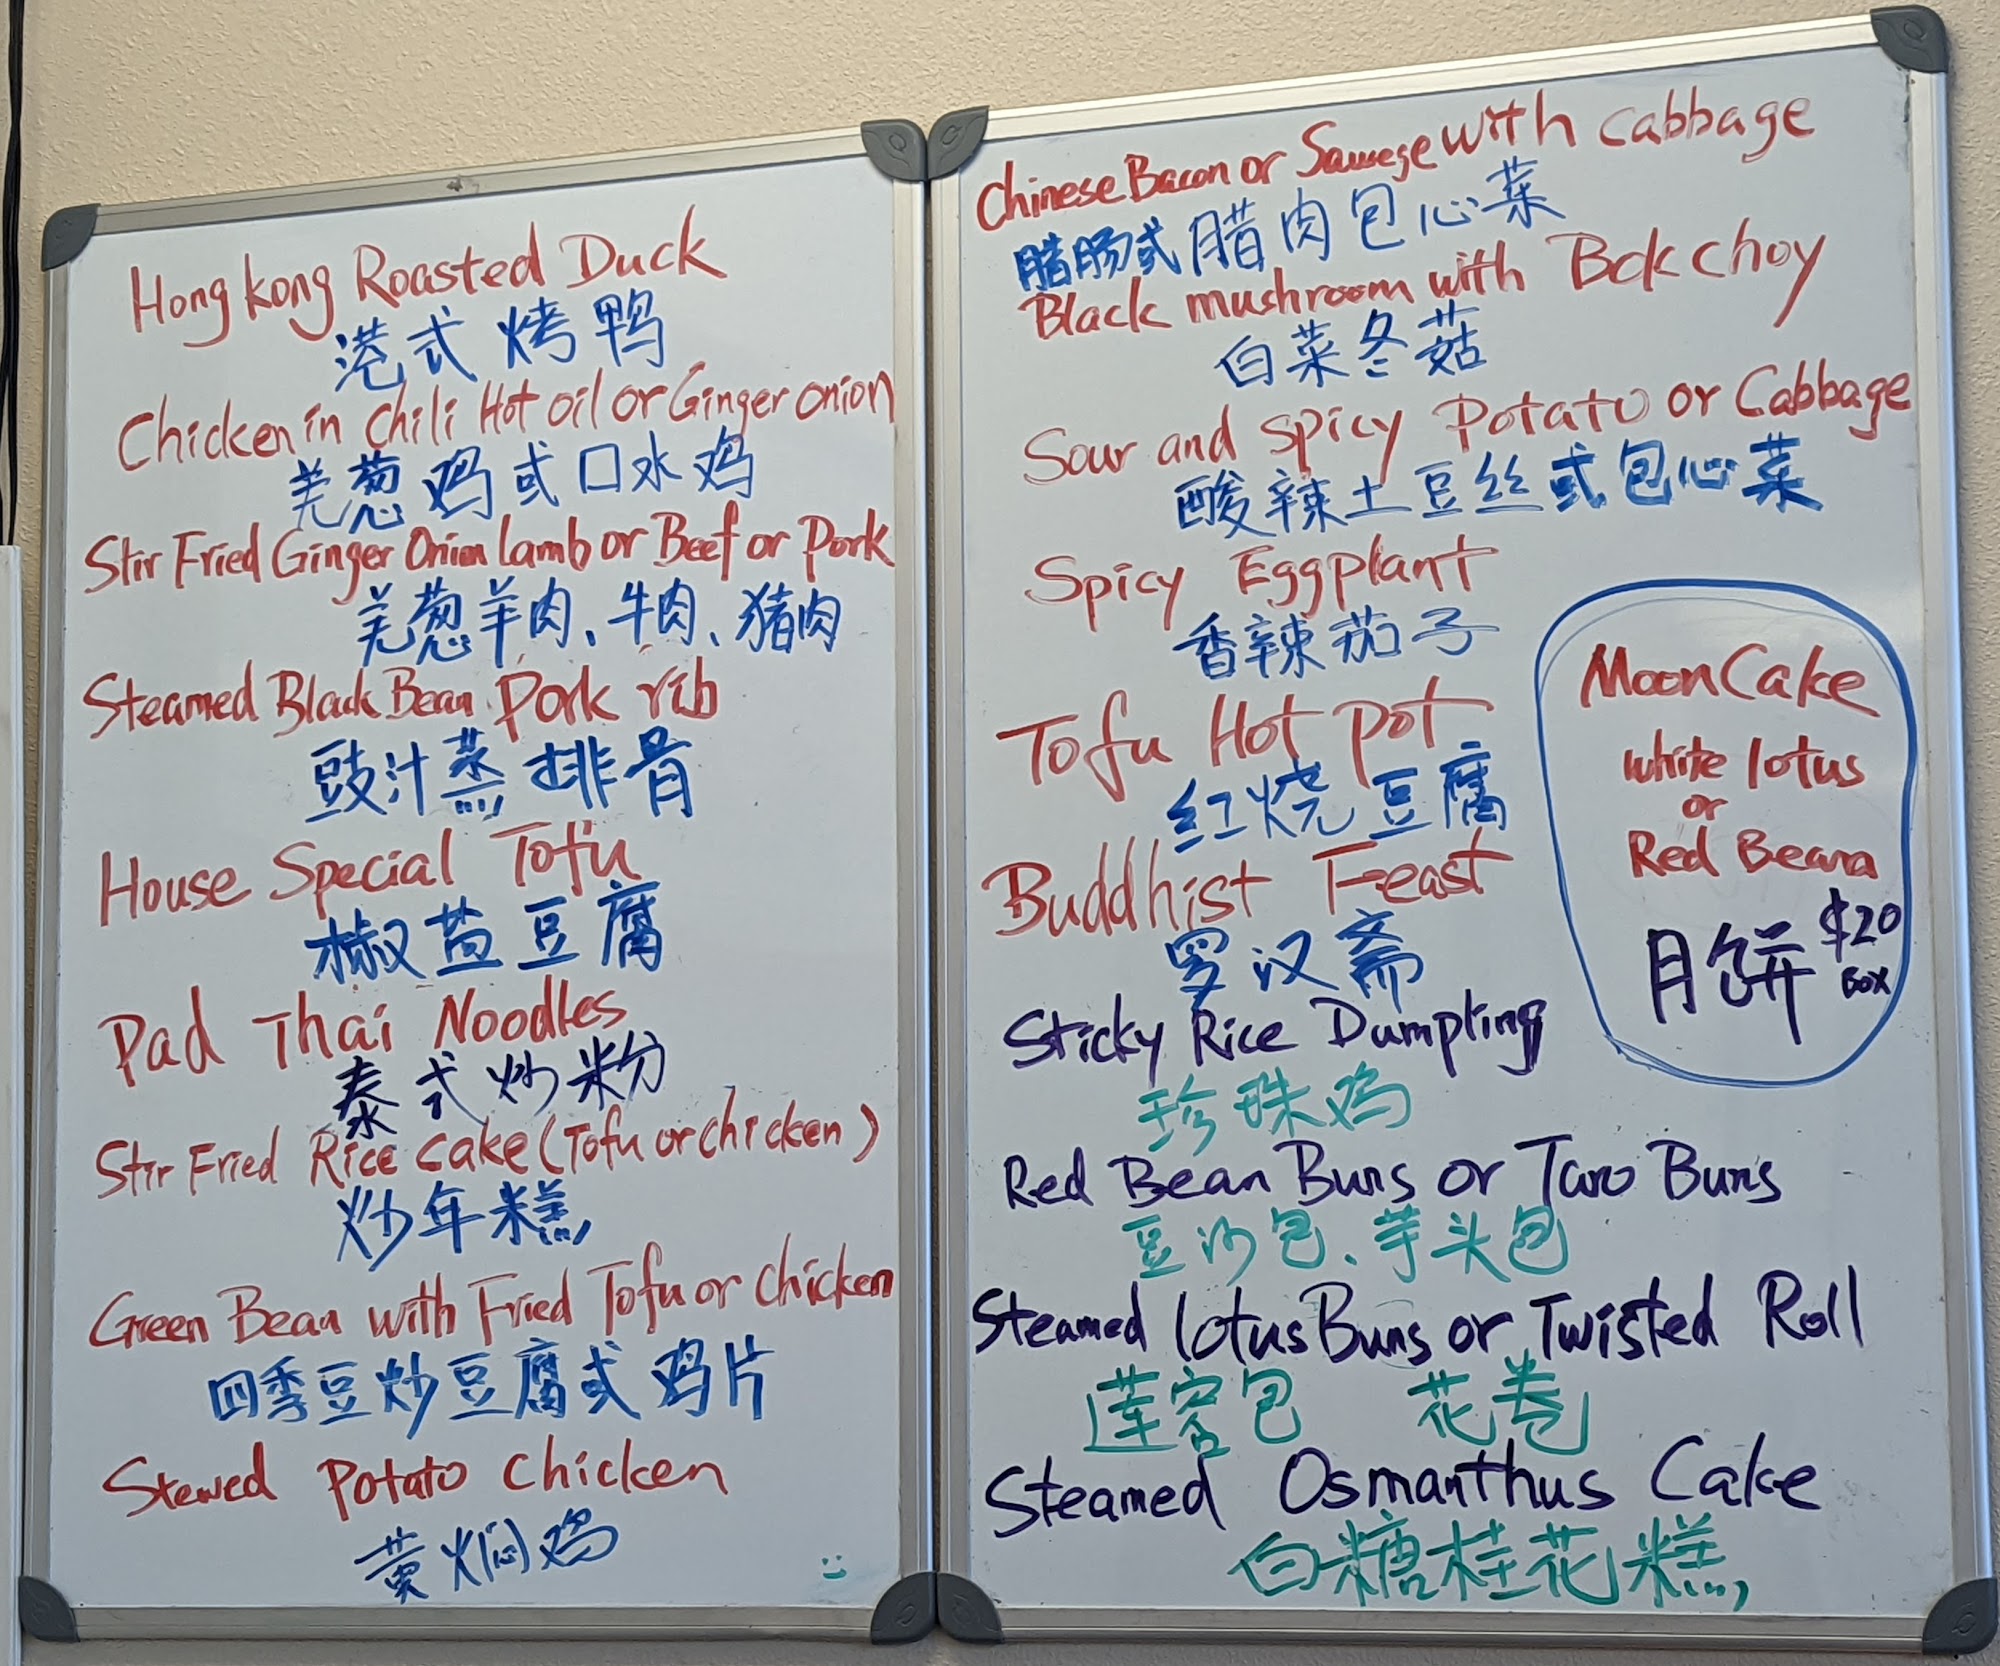 Hong kong Roasted Duck
港式烤鸭
Chicken in chili Hot oil or Ginger onion
羌葱鸡或口水鸡
Stir Fried Ginger Onion lamb or Beef or Pork
羌葱羊肉、牛肉、猪肉
Steamed Black Bean Pork rib
豉汁蒸排骨
House Special Tofu
椒盐豆腐
Pad Thai Noodles
泰式炒粉
Stir Fried Rice cake (Tofu or chicken)
炒年糕
Green Bean with Fried Tofu or chicken
四季豆炒豆腐或鸡片
Stewed Potato chicken
黄焖鸡
Chinese Bacon or Sausege with cabbage
腊肠或腊肉包心菜
Black mushroom with Bok choy
白菜冬菇
Sour and spicy Potato or Cabbage
酸辣土豆丝或包心菜
Spicy Eggplant
香辣茄子
Tofu Hot pot
红烧豆腐
Buddhist Feast
罗汉斋
Sticky Rice Dumpling
珍珠鸡
Red Bean Buns or Taro Buns
豆沙包、芋头包
Steamed lotus Buns or Twisted Roll
莲容包 花卷
Steamed Osmanthus Cake
白糖桂花糕
Moon Cake
white lotus
or
Red Beana
月饼 $20
Box